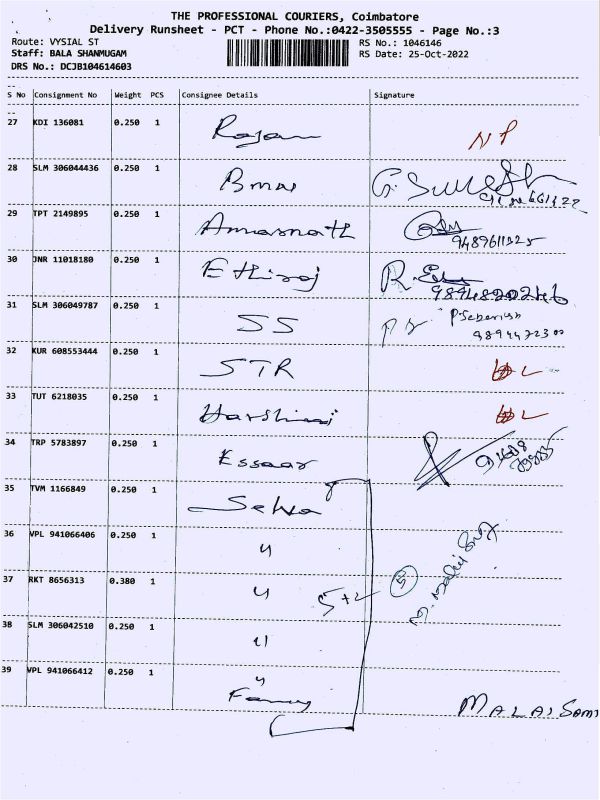 THE PROFESSIONAL COURIERS, Coimbatore
Delivery Runsheet - PCT - Phone No.:0422-3505555 - Page No.:3
Route: VYSIAL ST
RS No.: 1046146
Staff: BALA SHANMUGAM
RS Date: 25-Oct-2022
DRS No.: DCJB104614603
S No Consignment No Weight PCS Consignee Details Signature
27 KDI 136081 0.250 1 Rajan NP
28 SLM 306044436 0.250 1
29 TPT 2149895 0.250 1 Amarnath 9489611325
30 JNR 11018180 0.250 1 Ethiraj
31 SLM 306049787 0.250 1 SS
32 KUR 608553444 0.250 1 STR
33 TUT 6218035 0.250 1 Harshini
34 TRP 5783897 0.250 1 Essaar
35 TVM 1166849 0.250 1 Selva
36 VPL 941066406 0.250 1 "
37 RKT 8656313 0.380 1 " 5+2 5
38 SLM 306042510 0.250 1 "
39 VPL 941066412 0.250 1 "
Fancy MALAISAMI